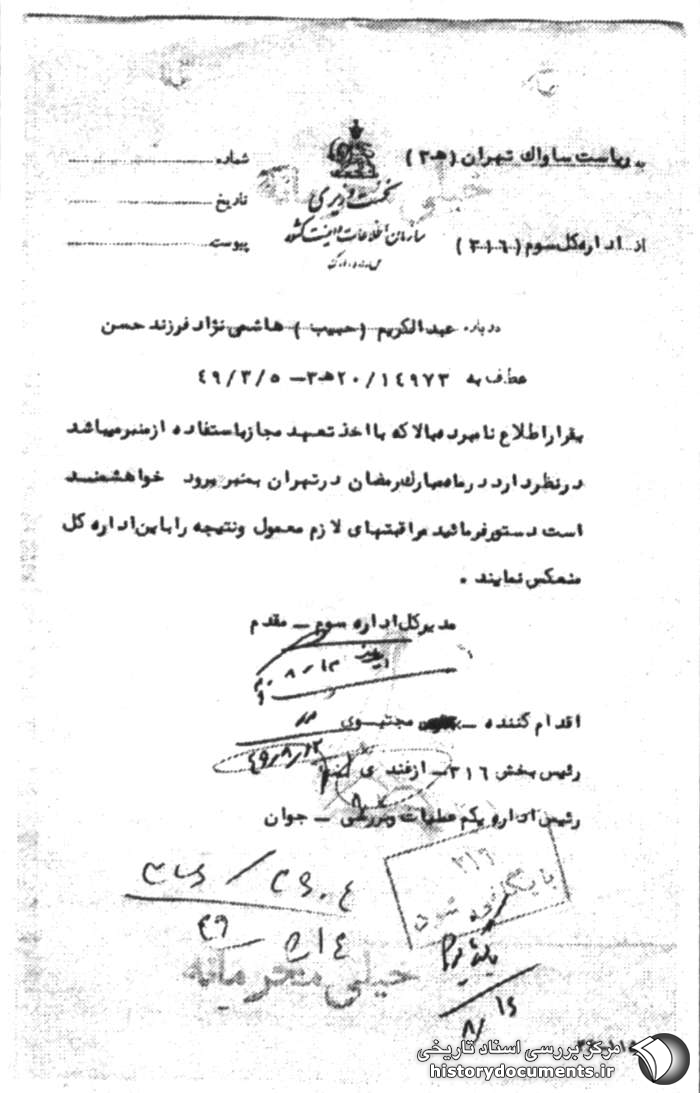 به ریاست ساواك تهران (هـ ۳)
از اداره كل سوم (۳۱۶)
شماره
تاریخ
پیوست
نخست وزیری
سازمان اطلاعات و امنیت کشور
س.ا.و.ا.ک
درباره عبدالکریم (حبیب) هاشمی نژاد فرزند حسن
عطف به ۲۰/۱۴۹۷۳هـ ۳ – ۴۹/۳/۵
بقرار اطلاع نامبرده بالا که با اخذ تعهد مجاز باستفاده از منبر میباشد
در نظر دارد در ماه مبارك رمضان در تهران بمنبر برود خواهشمند
است دستور فرمائید مراقبتهای لازم معمول و نتیجه را باین اداره کل
منعکس نمایند .
مدیر کل اداره سوم – مقدم
اقدام کننده – مجتبوی
۴۹/۸/۱۲
رئیس بخش ۳۱۶ – ازغندی
رئیس اداره یکم عملیات و بررسی – جوان
۳۱۶
بایگانی شود
خیلی محرمانه
۱۶/۸
مرکز بررسی اسناد تاریخی
historydocuments.ir